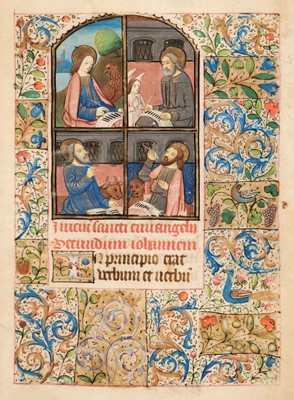 Iniciū sancti euuangelii
Secundum iohannem
In principio erat
verbum et verbū